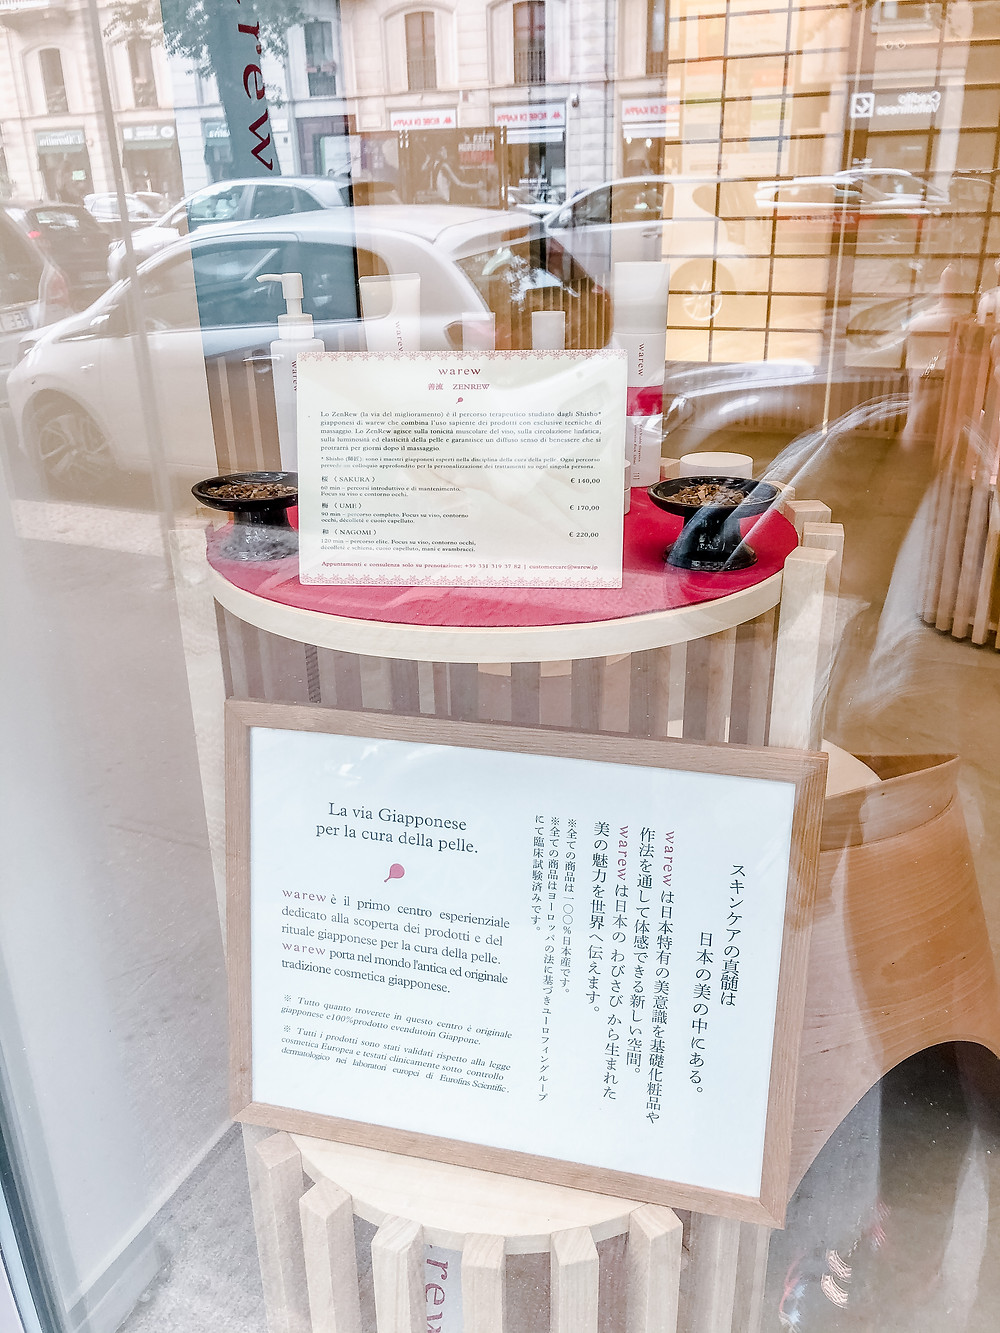 warew
ROSE DI KAPPA
warew
warew
warew
善流 ZENREW
Lo ZenRew (la via del miglioramento) è il percorso terapeutico studiato dagli Shisho*
giapponesi di warew che combina l'uso sapiente dei prodotti con esclusive tecniche di
massaggio. Lo ZenRew agisce sulla tonicità muscolare del viso, sulla circolazione linfatica,
sulla luminosità ed elasticità della pelle e garantisce un diffuso senso di benessere che si
protrarrà per giorni dopo il massaggio.
* Shisho (師匠): sono i maestri giapponesi esperti nella disciplina della cura della pelle. Ogni percorso
prevede un colloquio approfondito per la personalizzazione dei trattamenti su ogni singola persona.
桜 (SAKURA) € 140,00
60 min – percorsi introduttivo e di mantenimento.
Focus su viso e contorno occhi.
梅 (UME) € 170,00
90 min – percorso completo. Focus su viso, contorno
occhi, décolleté e cuoio capelluto.
和 (NAGOMI) € 220,00
120 min – percorso elite. Focus su viso, contorno occhi,
décolleté e schiena, cuoio capelluto, mani e avambracci.
Appuntamenti e consulenza solo su prenotazione: +39 331 319 37 82 | customercare@warew.jp
La via Giapponese
per la cura della pelle.
warew è il primo centro esperienziale
dedicato alla scoperta dei prodotti e del
rituale giapponese per la cura della pelle.
warew porta nel mondo l'antica ed originale
tradizione cosmetica giapponese.
※ Tutto quanto troverete in questo centro è originale
giapponese e 100% prodotto e venduto in Giappone.
※ Tutti i prodotti sono stati validati rispetto alla legge
cosmetica Europea e testati clinicamente sotto controllo
dermatologico nei laboratori europei di Eurofins Scientific.
スキンケアの真髄は
日本の美の中にある。
warew は日本特有の美意識を基礎化粧品や
作法を通して体感できる新しい空間。
warew は日本のわびさびから生まれた
美の魅力を世界へ伝えます。
※全ての商品は一〇〇%日本産です。
※全ての商品はヨーロッパの法に基づきユーロフィングループ
にて臨床試験済みです。